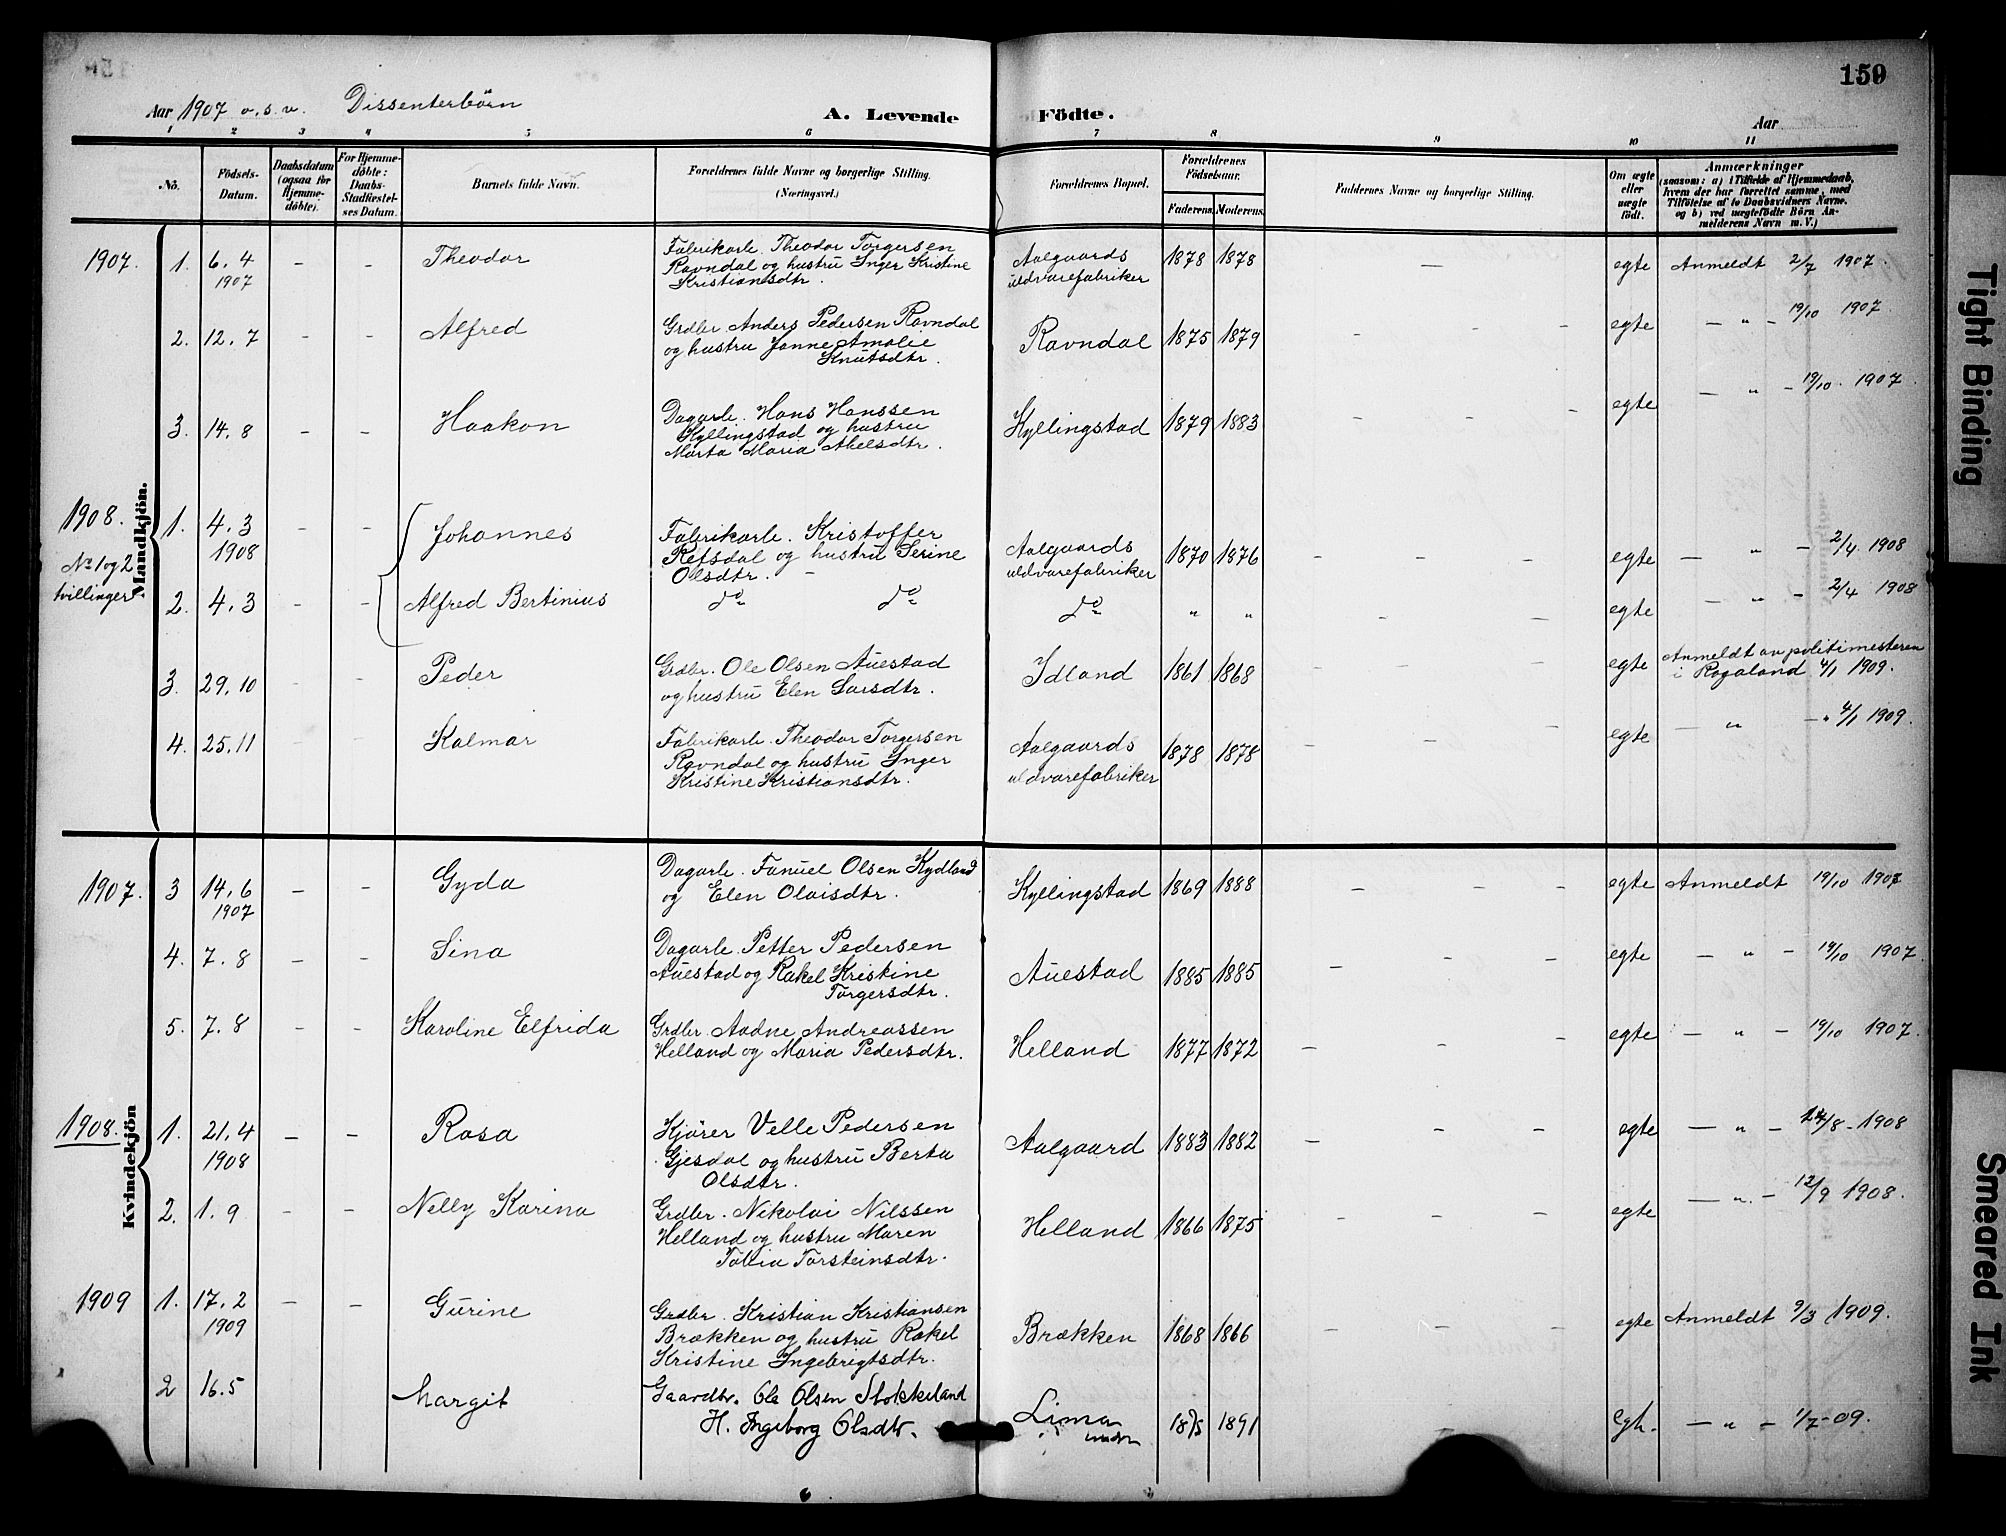 159
Aar 1907 o.s.v. Dissenterbörn A. Levende Födte. Aar
1 2 3 4 5 6 7 8 9 10 11
No. Födsels-Datum. Daabsdatum (ogsaa for Hjemme-döbte). For Hjemme-döbte: Daabs-Stadfæstel-ses Datum. Barnets fulde Navn. Forældrenes fulde Navne og borgerlige Stilling. (Næringsvei.) Forældrenes Bopæl. Forældrenes Födselsaar. Faderens. Moderens. Faddernes Navne og borgerlige Stilling. Om ægte eller uægte födt. Anmærkninger (saasom: a) i Tilfælde af Hjemmedaab, hvem der har forrettet samme, med Tilföielse af to Daabsvidners Navne, og b) ved uægtefödte Börn An-melderens Navn m. V.)
Mandkjön.
1907. 1. 6.4 1907 - - Theodor Fabrikarb. Theodor Torgersen Ravndal og hustru Inger Kristine Kristiansdtr. Aalgaards uldvarefabriker 1878 1878 - egte Anmeldt 2/7 1907.
2. 12.7 - - Alfred Grdbr. Anders Pedersen Ravndal og hustru Janne Amalie Knutsdtr. Ravndal 1875 1879 - - - egte - " - 19/10 1907
3. 14.8 - - Haakon Dagarb. Hans Hanssen Kyllingstad og hustru Marta Maria Akselsdtr. Kyllingstad 1879 1883 - - - egte - " - 19/10. 1907.
1908. No 1 og 2 tvillinger.
1. 4.3 1908 - - Johannes Fabrikarb. Kristoffer Refsdal og hustru Serine Olsdtr. - Aalgaards uldvarefabriker 1870 1876 - - - egte - " - 2/4. 1908
2. 4.3 - - Alfred Bertinius do do do " " - - - egte - " - 2/4 1908
3. 29.10 - - Peder Grdbr. Ole Olsen Auestad og hustru Elen Larsdtr. Idland 1861 1868 - - - egte Anmeldt av politimesteren i Rogaland 4/1 1909.
4. 25.11 - - Kalmar Fabrikarb. Theodor Torgersen Ravndal og hustru Inger Kristine Kristiansdtr. Aalgaards uldvarefabriker 1878 1878 - - - egte - " - 4/1 1909.
Kvindekjön
1907. 3 14.6 1907 - - Gyda Dagarb. Fanuel Olsen Kydland og Elen Olaisdtr. Kyllingstad 1869 1888 - - - egte Anmeldt 19/10 1907
4. 7.8 - - Sina Dagarb. Petter Pedersen Auestad og Rakel Kristine Torgersdtr. Auestad 1885 1885 - - - egte - " - 19/10 1907.
5. 7.8 - - Karoline Elfrida Grdbr. Aadne Andreassen Helland og Maria Pedersdtr. Helland 1877 1872 - - - egte - " - 19/10 1907.
1908. 1. 21.4 1908 - - Rosa Kjører Velle Pedersen Gjesdal og hustru Berta Olsdtr. Aalgaard 1883 1882 - - - egte - " - /8 - 1908
2. 1.9 - - Nelly Karina Grdbr. Nikolai Nilssen Helland og hustru Maren Tobia Torsteinsdtr. Helland 1866 1875 - - - egte - " - 12/9 1908.
1909 1. 17.2 1909 - - Gurine Grdbr. Kristian Kristiansen Brækken og hustru Rakel Kristine Ingebrigtsdtr. Brækken 1868 1866 - - - egte Anmeldt 9/3 1909.
2 16.5 Margit Gaardbr. Ole Olsen Stokkeland H. Ingeborg Olsdtr. Lima 1891 egte. - " - 1/7-09.
Tight Binding
Smeared Ink